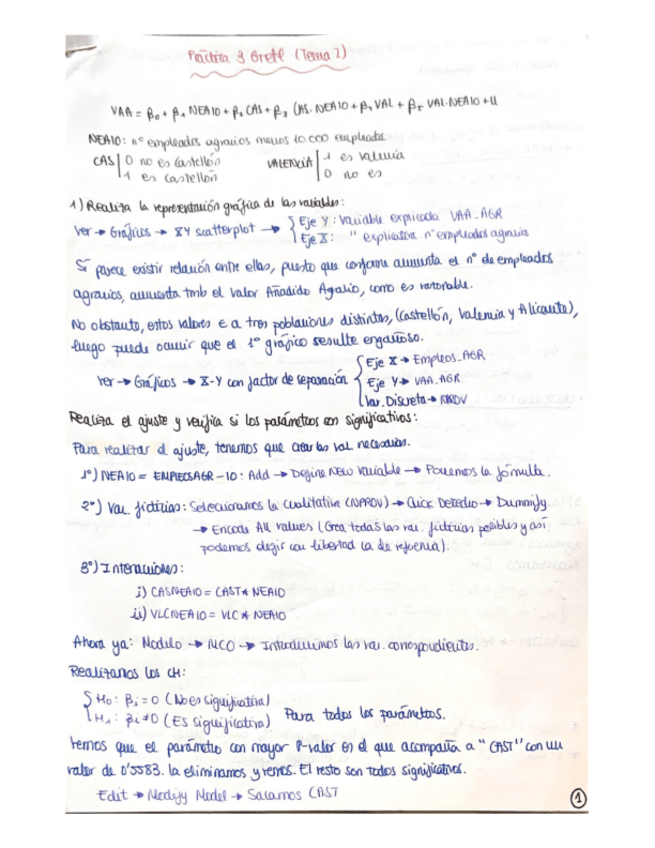 Práctica 3 Gretl (Tema 2)
VAA = β₀ + β₁ NEA10 + β₂ CAS + β₃ CAS·NEA10 + β₄ VAL + β₅ VAL·NEA10 + U
NEA10: nº empleados agrarios menos 10.000 empleados
CAS | 0 no es Castellón VALENCIA | 1 es Valencia
1 es Castellón 0 no es
1) Realiza la representación gráfica de las variables:
Ver → Gráficos → XY scatterplot → { Eje Y: Variable explicada VAA_AGR
Eje X: " explicativa nº empleados agrarios
Sí parece existir relación entre ellas, puesto que conforme aumenta el nº de empleados
agrarios, aumenta tmb el Valor Añadido Agrario, como es razonable.
No obstante, estos valores a tres poblaciones distintas, (Castellón, Valencia y Alicante),
luego puede ocurrir que el 1º gráfico resulte engañoso.
Ver → Gráficos → X-Y con factor de separación { Eje X → Empleos_AGR
Eje Y → VAA_AGR
Var. Discreta → NPROV
Realiza el ajuste y verifica si los parámetros son significativos:
Para realizar el ajuste, tenemos que crear las var necesarias.
1º) NEA10 = EMPLEOSAGR - 10: Add → Define New Variable → Ponemos la fórmula.
2º) Var. ficticias: Seleccionamos la cualitativa (NPROV) → Click Derecho → Dummify
→ Encode All values (Crea todas las var. ficticias posibles y así
podemos elegir con libertad la de referencia).
3º) Interacciones:
i) CASNEA10 = CAST * NEA10
ii) VLCNEA10 = VLC * NEA10
Ahora ya: Modelo → MCO → Introducimos las var. correspondientes.
Realizamos los CH:
{ H₀: βi = 0 (No es significativa)
H₁: βi ≠ 0 (Es significativa) Para todos los parámetros.
Vemos que el parámetro con mayor P-valor es el que acompaña a "CAST" con un
valor de 0'5583. La eliminamos y vemos. El resto son todos significativos.
Edit → Modify Model → Sacamos CAST
1